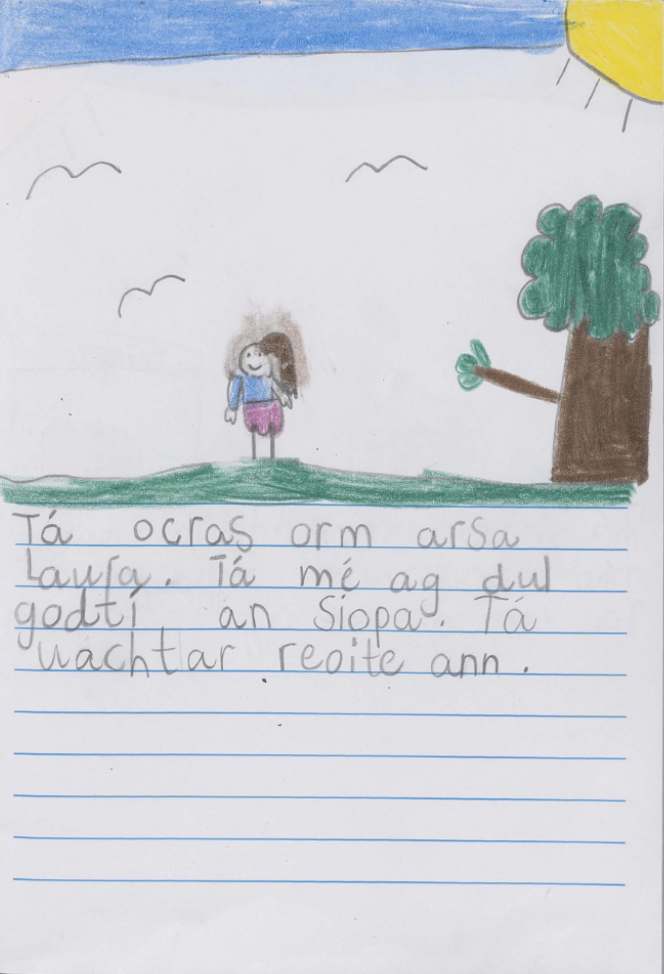 Tá ocras orm arsa
Laura. Tá mé ag dul
godtí an Siopa. Tá
uachtar reoite ann.